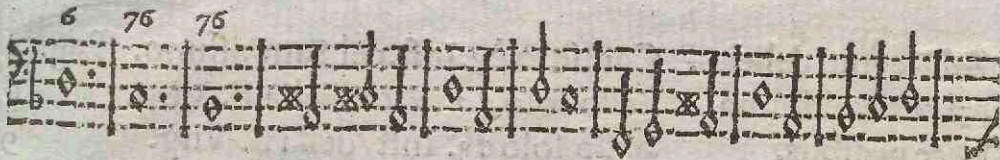 6 76 76